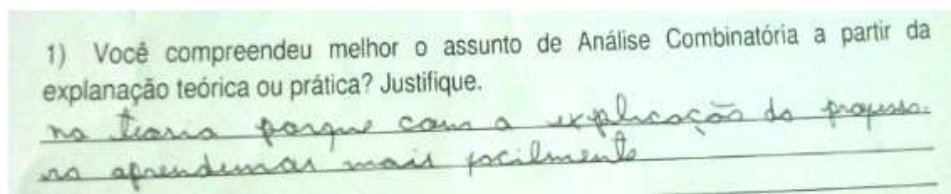 1) Você compreendeu melhor o assunto de Análise Combinatória a partir da
explanação teórica ou prática? Justifique.
na teoria porque com a explicação do professo-
ra aprendemos mais facilmente